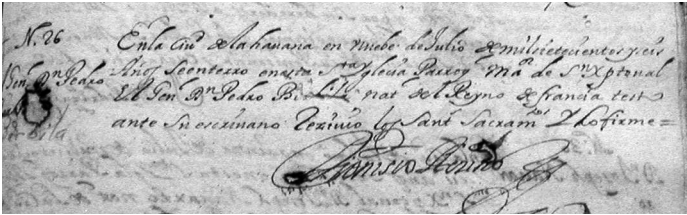 N. 26
En la Ciu.d de la havana en nuebe de Julio de mil sietecientos y seis
Gen.l D.n Pedro
Años se enterro en esta S.ta Yglecia Parroq. ma.or de S.n Xptoual
El Gen.l D.n Pedro nat. del Reyno de francia test.o
ante Su escrivano Recivio los Sant.s Sacram.tos y lo firme =
Dionisio Resino